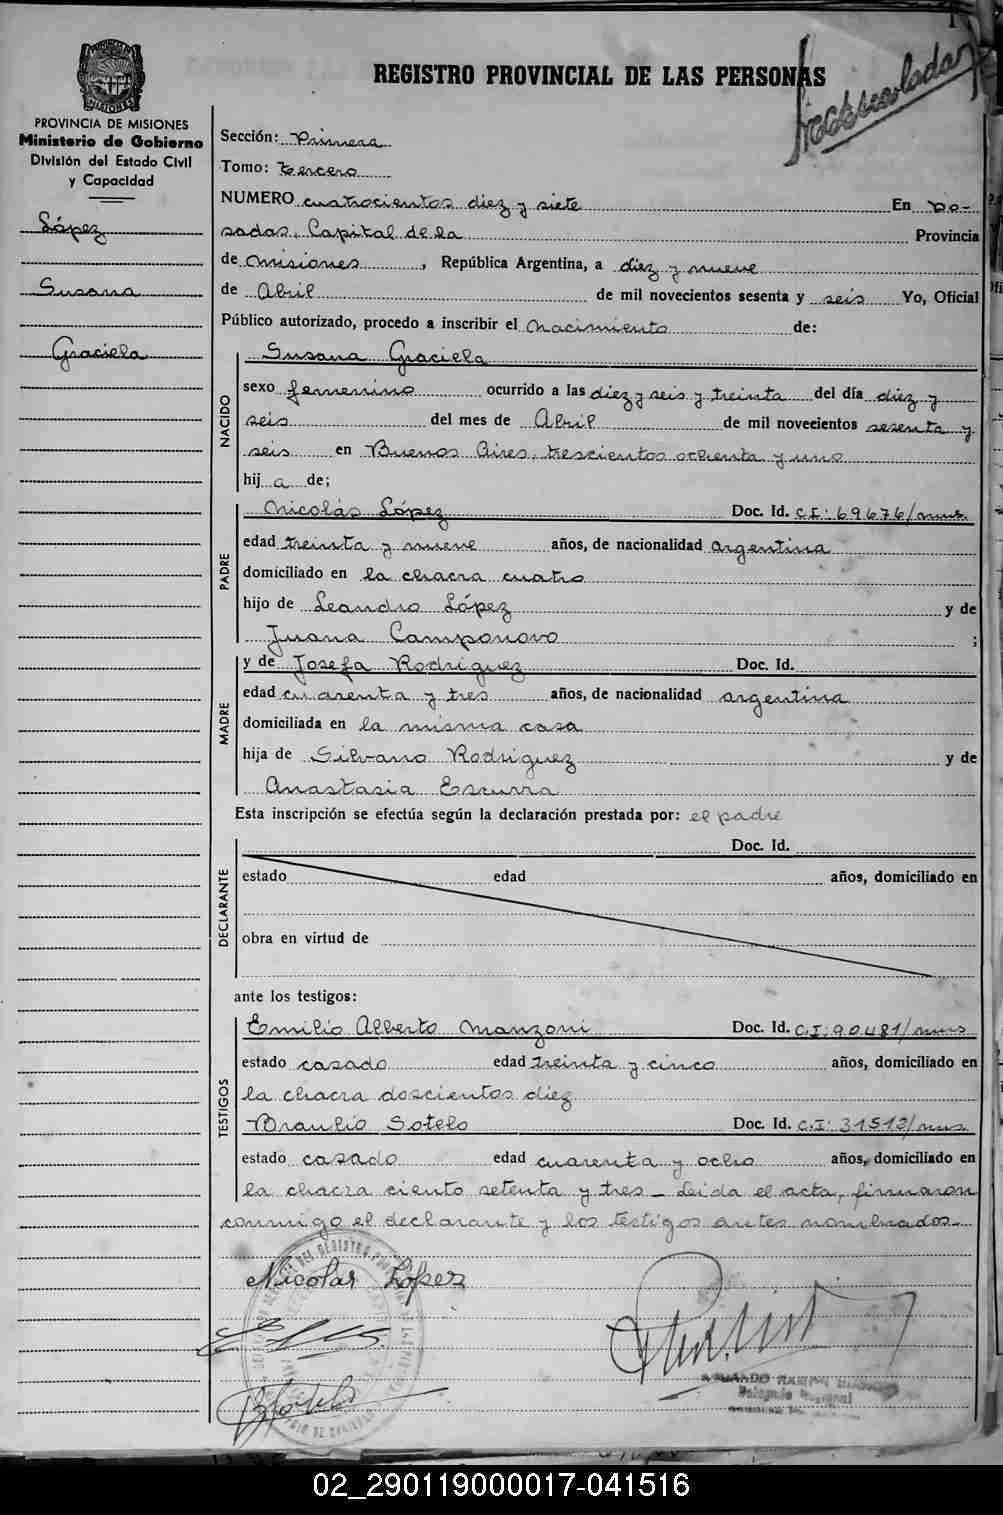 REGISTRO PROVINCIAL DE LAS PERSONAS
MISIONES
PROVINCIA DE MISIONES
Ministerio de Gobierno
División del Estado Civil
y Capacidad
López
Susana
Graciela
Sección: Primera
Tomo: tercero
NUMERO cuatrocientos diez y siete En Po-
sadas, Capital de la Provincia
de Misiones, República Argentina, a diez y nueve
de Abril de mil novecientos sesenta y seis Yo, Oficial
Público autorizado, procedo a inscribir el nacimiento de:
NACIDO
Susana Graciela
sexo femenino ocurrido a las diez y seis y treinta del día diez y
seis del mes de Abril de mil novecientos sesenta y
seis en Buenos Aires, trescientos ochenta y uno
hij a de;
PADRE
Nicolás López Doc. Id. C.I: 69676/mns.
edad treinta y nueve años, de nacionalidad argentina
domiciliado en la chacra cuatro
hijo de Leandro López y de
Juana Camponovo ;
MADRE
y de Josefa Rodriguez Doc. Id.
edad cuarenta y tres años, de nacionalidad argentina
domiciliada en la misma casa
hija de Silvano Rodriguez y de
Anastasia Escurra
Esta inscripción se efectúa según la declaración prestada por: el padre
DECLARANTE
Doc. Id.
estado edad años, domiciliado en
obra en virtud de
ante los testigos:
TESTIGOS
Emilio Alberto Manzoni Doc. Id. C.I: 90481/mns
estado casado edad treinta y cinco años, domiciliado en
la chacra doscientos diez
Braulio Sotelo Doc. Id. C.I: 31512/mns.
estado casado edad cuarenta y ocho años, domiciliado en
la chacra ciento setenta y tres _ Leida el acta, firmaron
conmigo el declarante y los testigos antes nombrados._
Nicolas López
BSotelo
Delegado
02_290119000017-041516